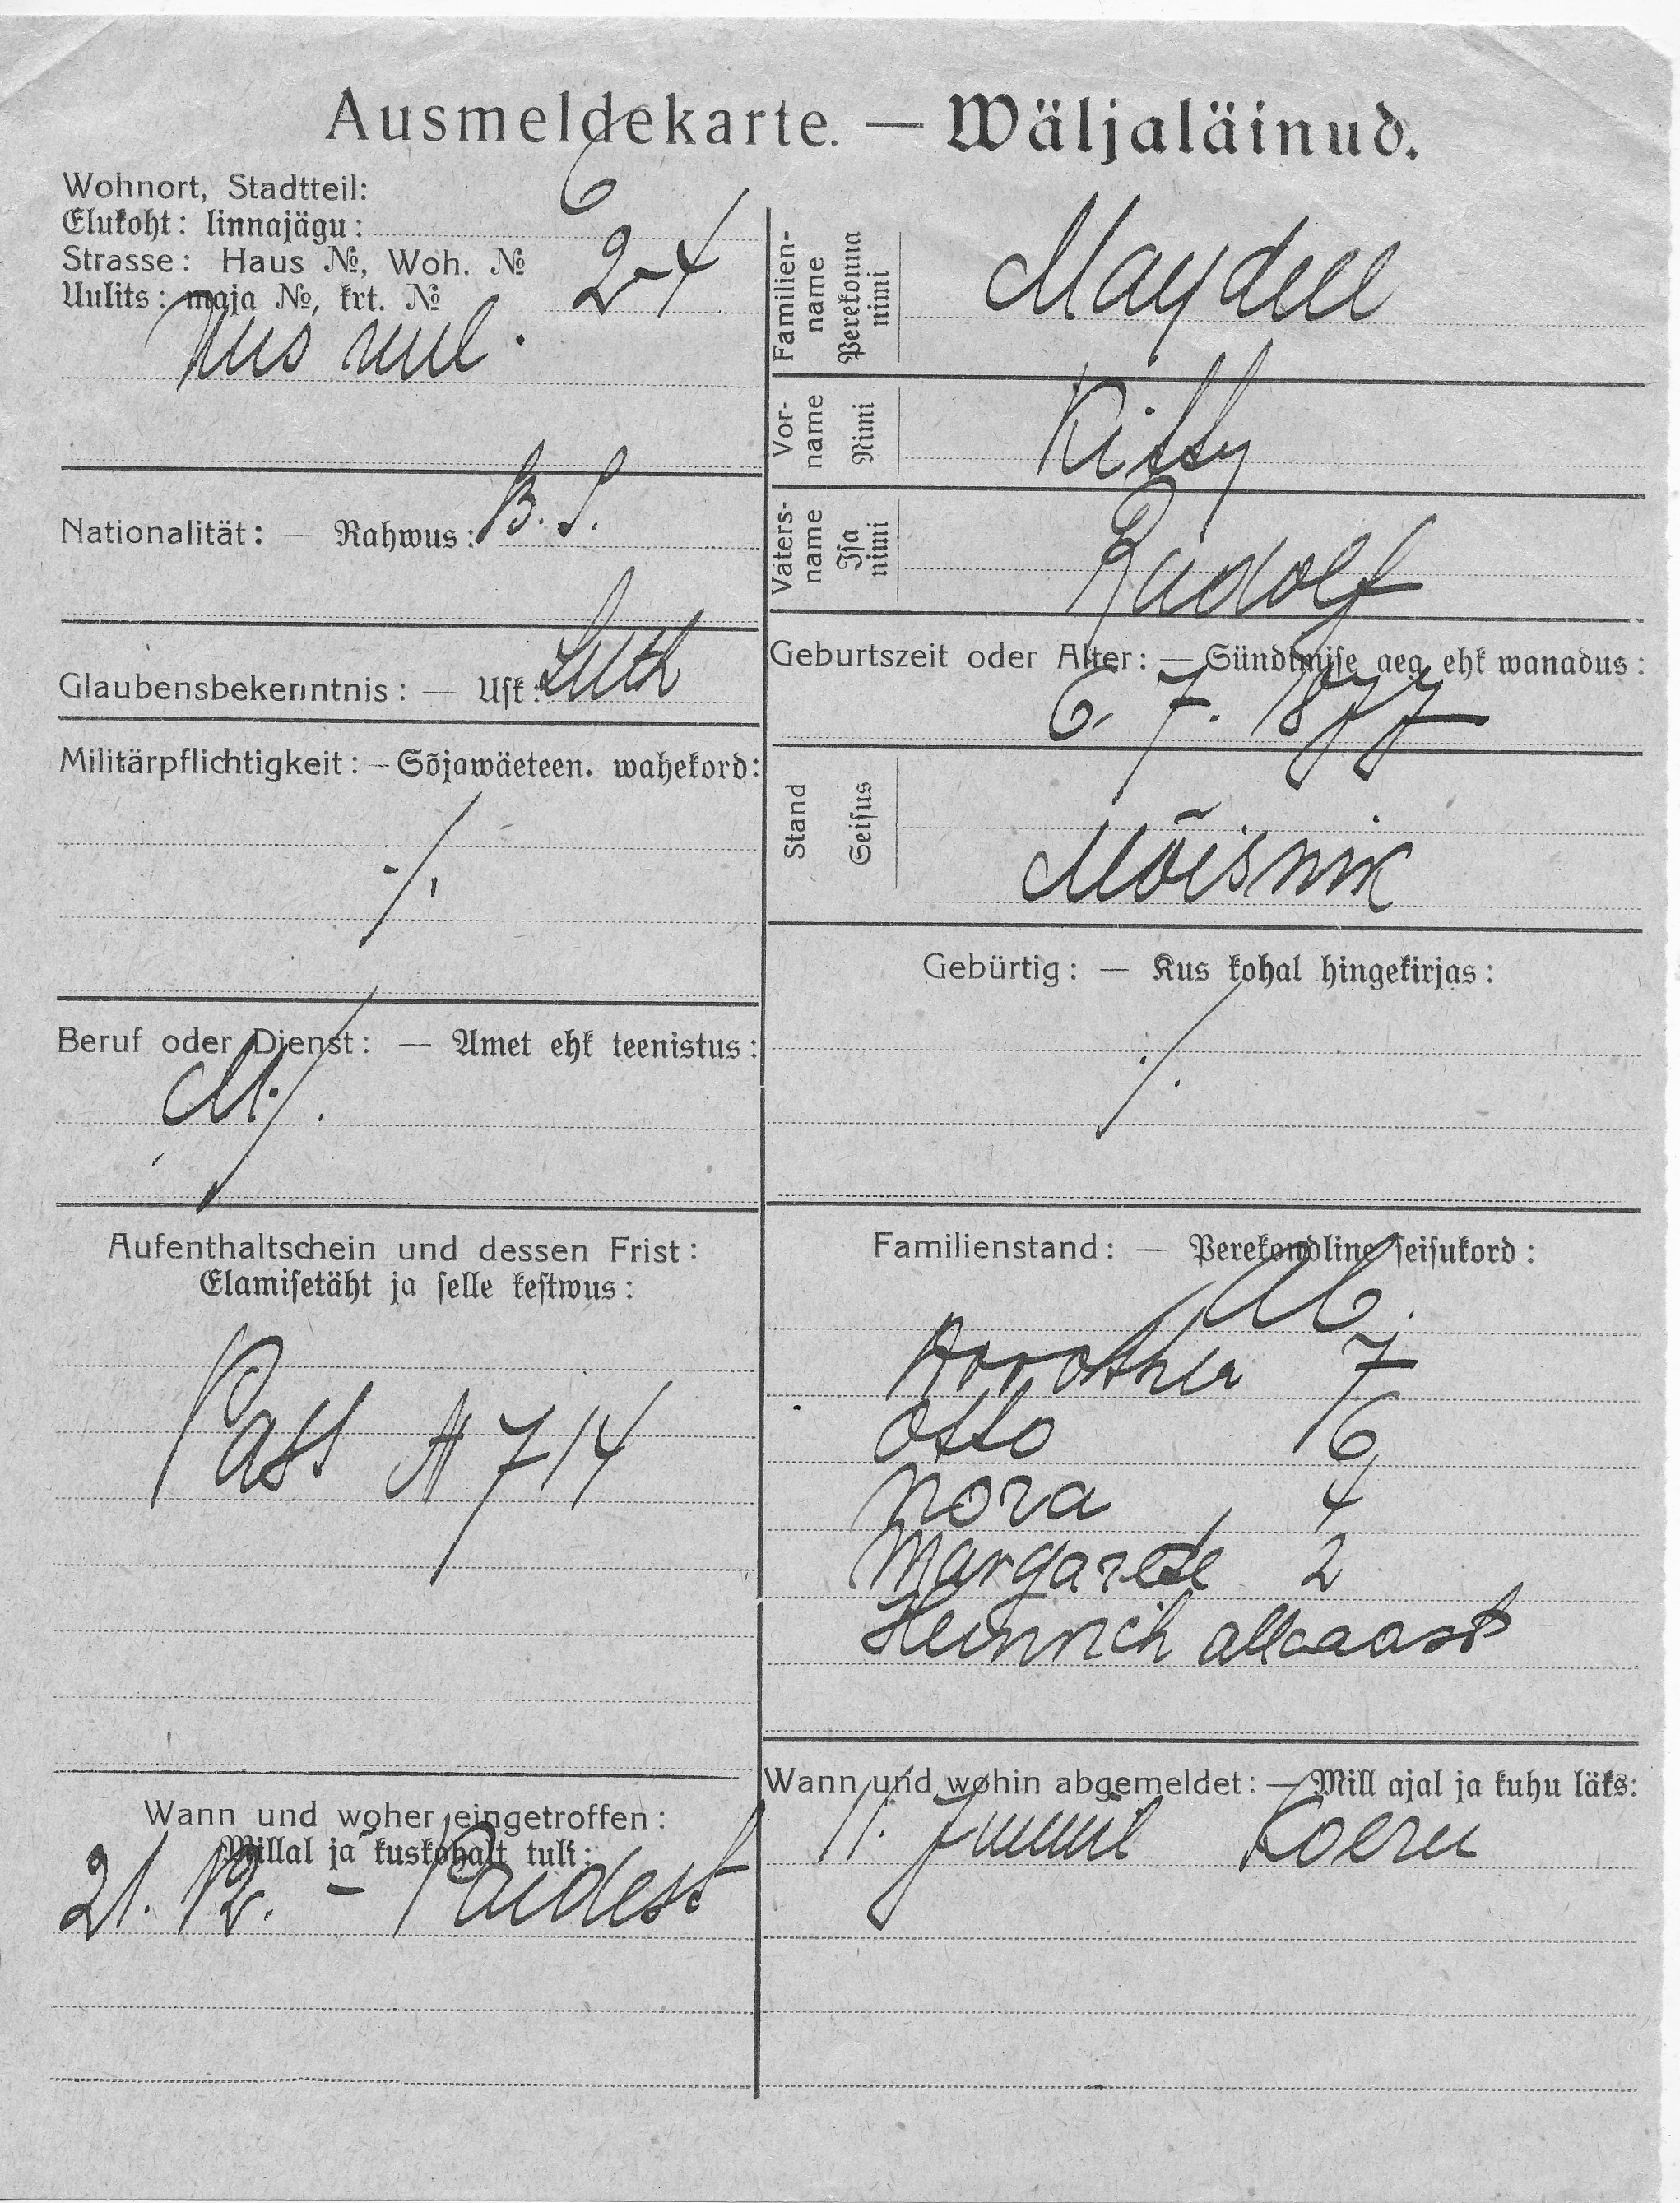 Ausmeldekarte. — Wäljaläinud.
Wohnort, Stadtteil: 6
Elukoht: linnajägu:
Strasse: Haus №, Woh. № 2-4
Uulits: maja №, krt. №
Uus uul.
Nationalität: — Rahwus: B. S.
Glaubensbekenntnis: — Usk: Luth
Militärpflichtigkeit: — Sõjawäeteen. wahekord:
·/.
Beruf oder Dienst: — Amet ehk teenistus:
Aufenthaltschein und dessen Frist:
Elamisetäht ja selle kestwus:
Pass № 714
Wann und woher eingetroffen:
Millal ja kuskohalt tuli:
21. 12. — Paidest
Familien-name Perekonna nimi Maydell
Vor-name Nimi Kitty
Vaters-name Isa nimi Rudolf
Geburtszeit oder Alter: — Sündimise aeg ehk wanadus:
6. 7. 1877
Stand Seisus Mõisnik
Gebürtig: — Kus kohal hingekirjas:
·/.
Familienstand: — Perekondline seisukord:
Ab.
Dorothea 7
Otto 6
Nora 4
Margarete 2
Heinrich all aast
Wann und wohin abgemeldet: — Mill ajal ja kuhu läks:
11. Juunil Koeru